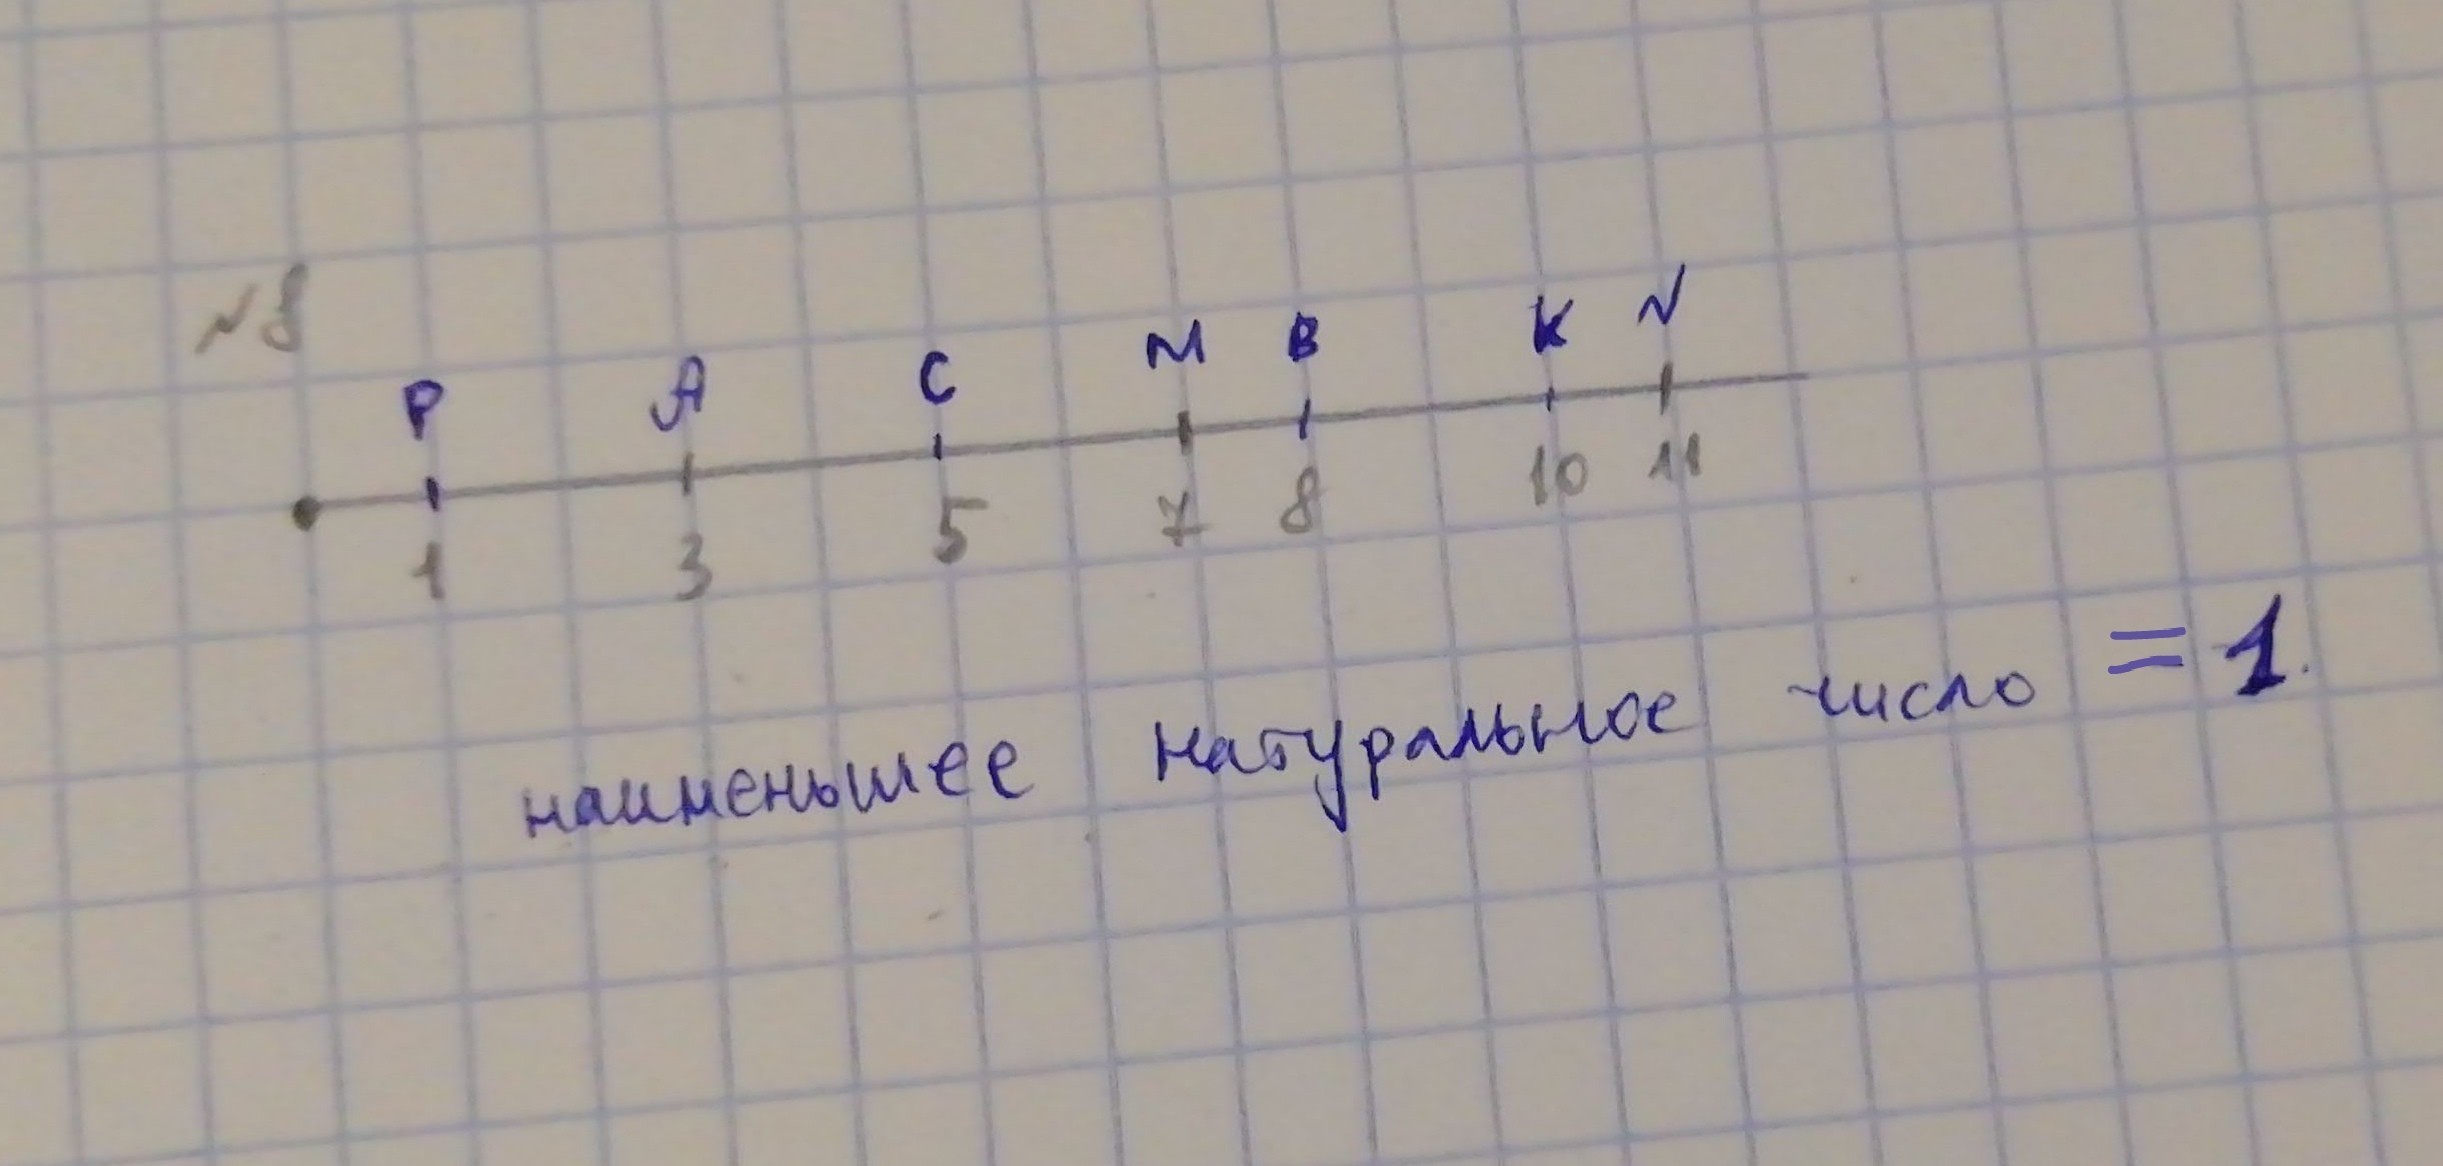 №8
P A C M B K N
1 3 5 7 8 10 11
наименьшее натуральное число = 1.